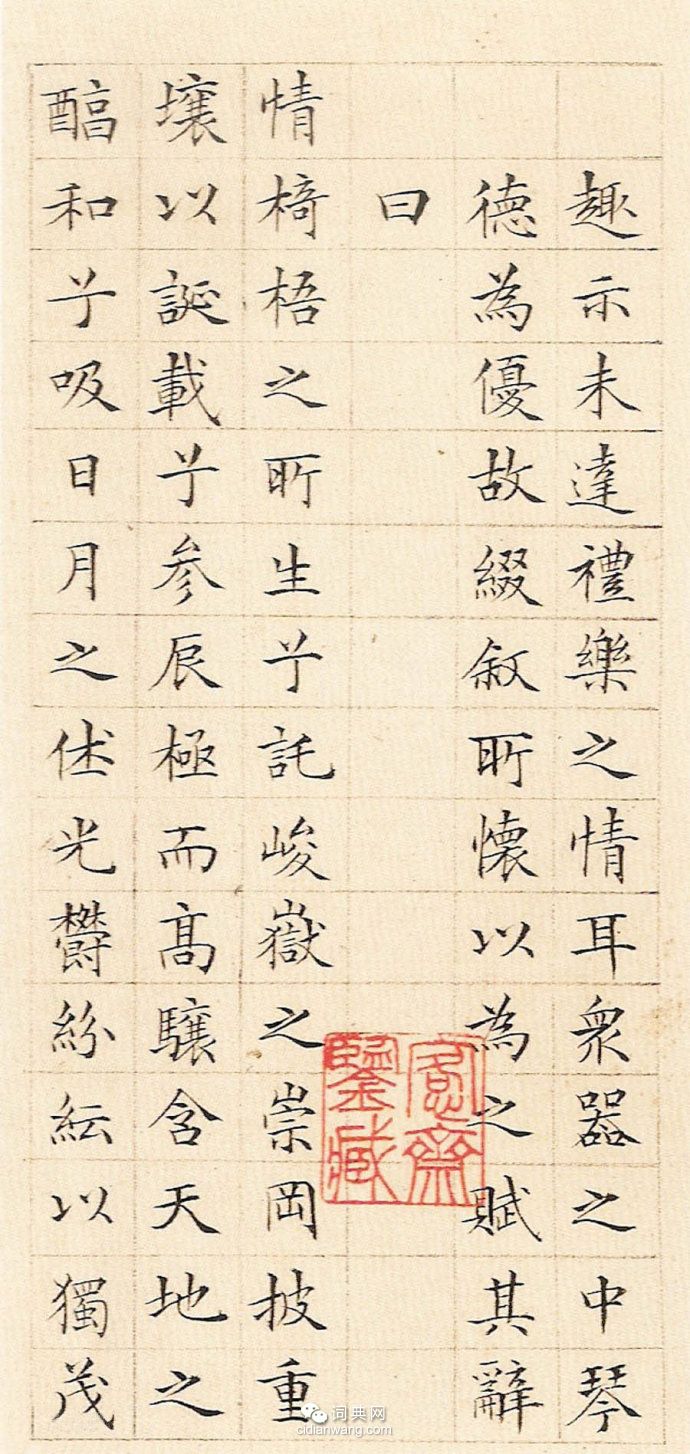 趣示未達禮樂之情耳衆器之中琴
德為優故綴叙所懷以為之賦其辭
曰
情椅梧之所生兮託峻嶽之崇岡披重
壤以誕載兮参辰極而髙驤含天地之
醕和兮吸日月之休光欝紛紜以獨茂
愙齋鑒藏
词典网
cidianwang.com